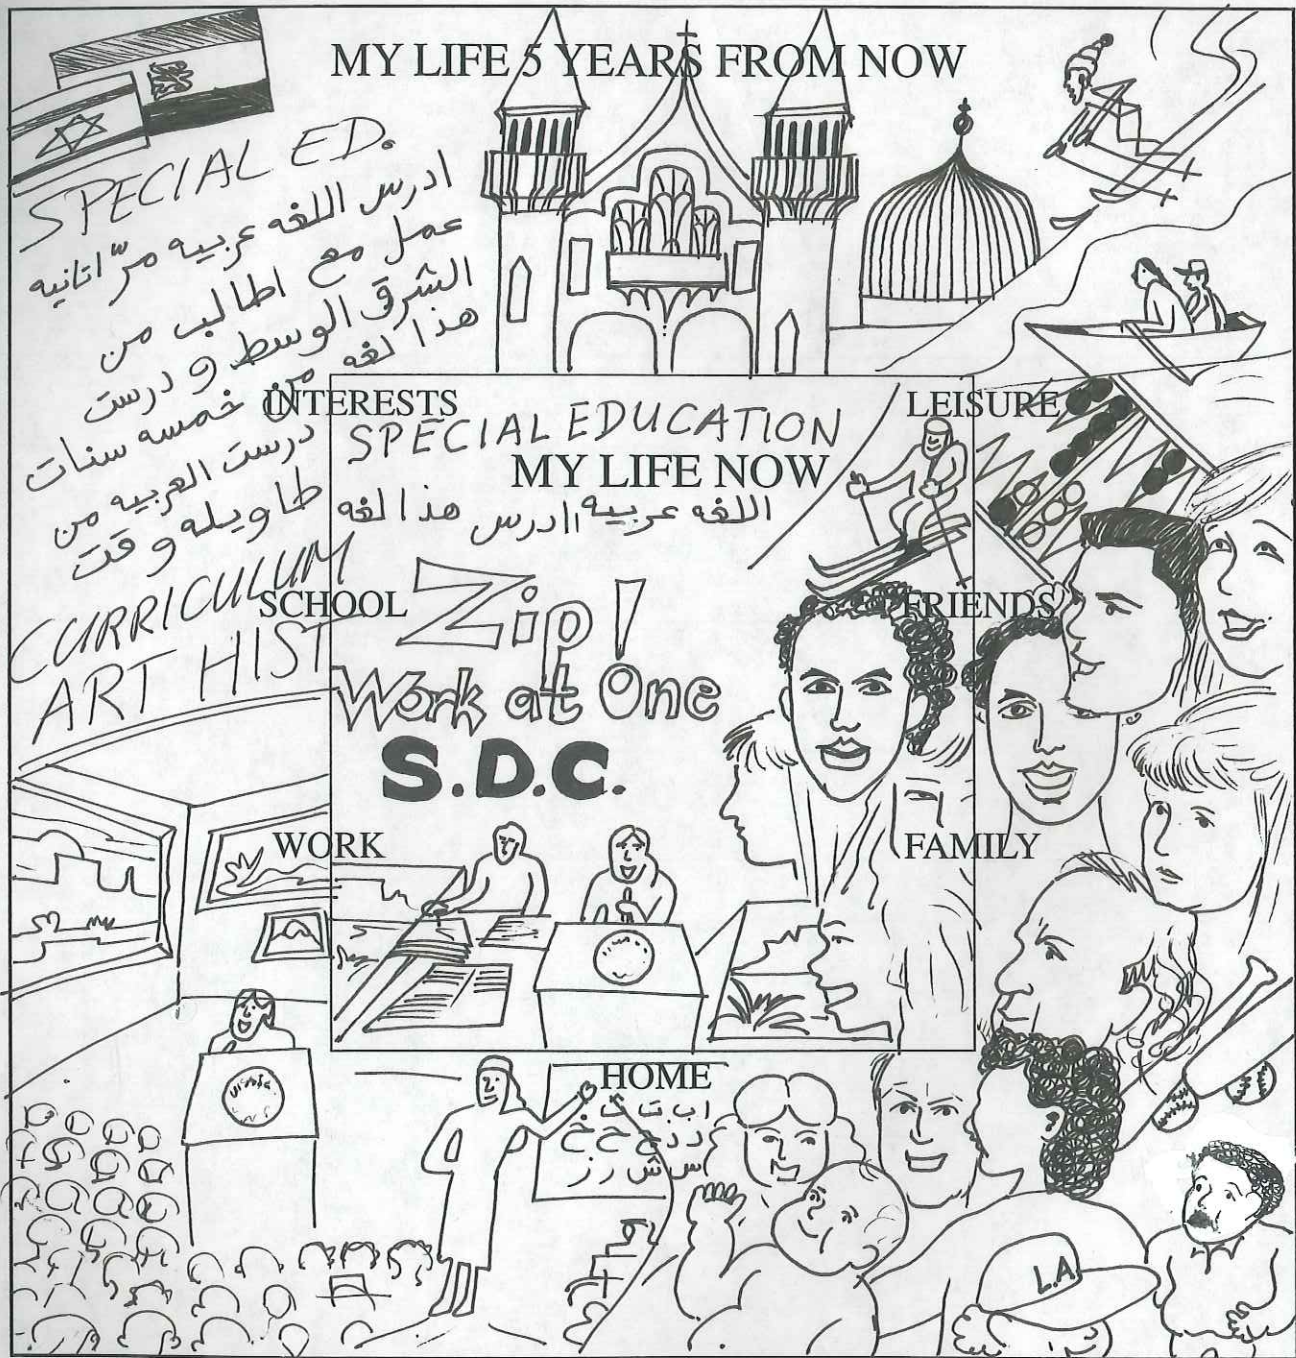 MY LIFE 5 YEARS FROM NOW
SPECIAL ED.
ادرس اللغه عربيه مرّ اتانيه
عمل مع اطالب من
الشرق الوسط و درست
هذا لغه من خمسه سنات
درست العربيه من
طاويله وقت
CURRICULUM
ART HIST
INTERESTS
LEISURE
SPECIAL EDUCATION
MY LIFE NOW
اللغه عربيه اادرس هذا لغه
SCHOOL
FRIENDS
Zip!
Work at One
S.D.C.
WORK
FAMILY
HOME
ا ب ت ث
ج ح خ د ذ
ر ز س ش
L.A.